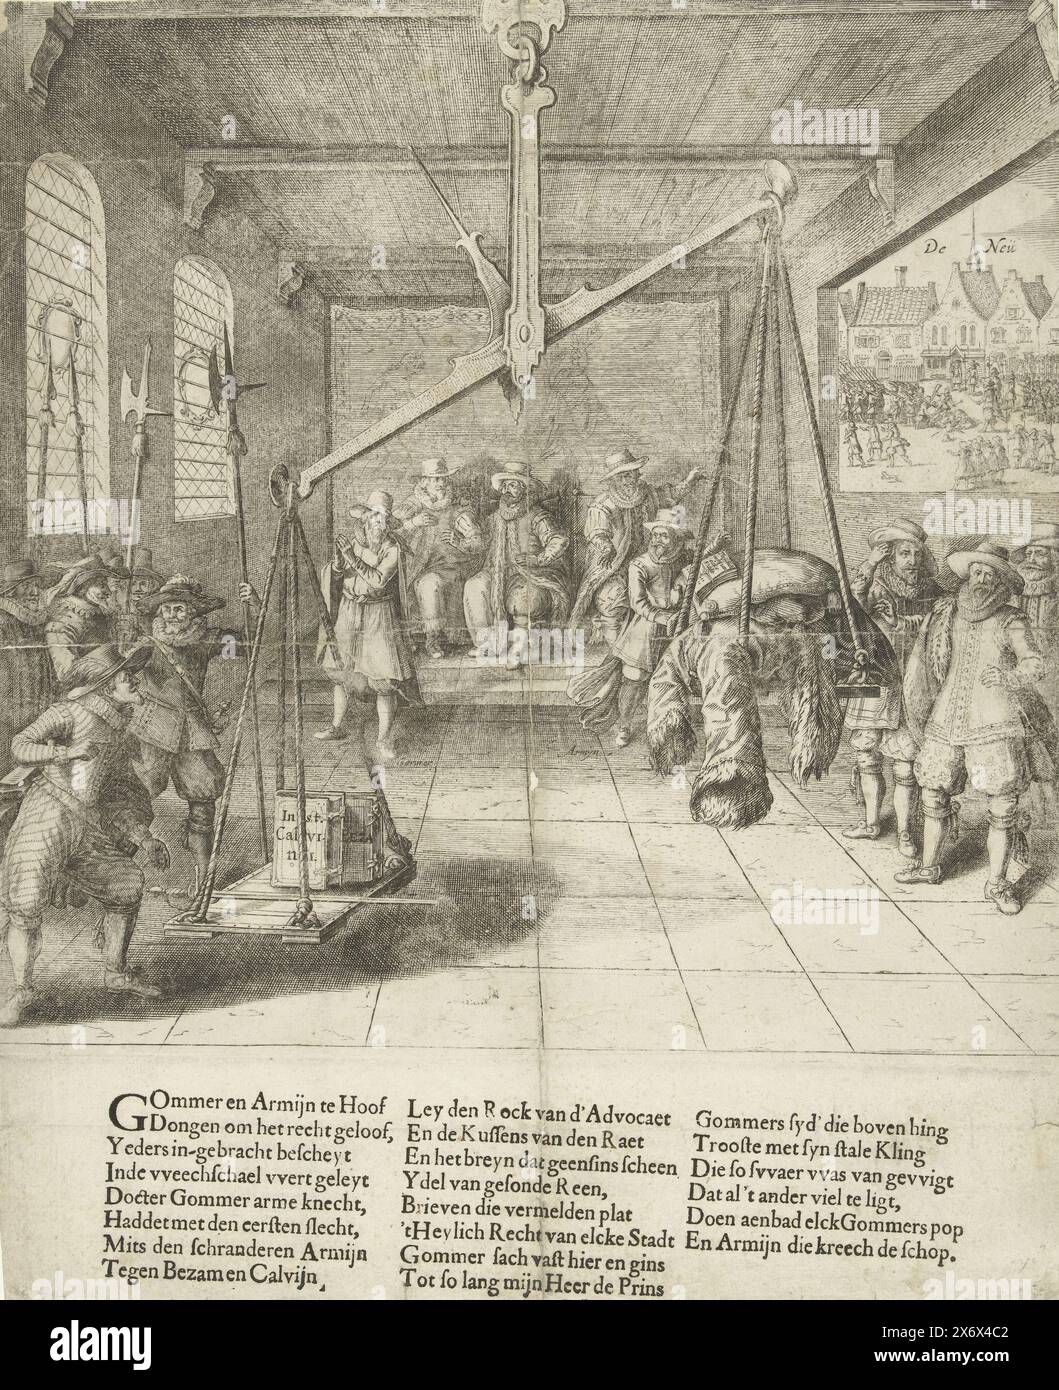 De Neü
Gommer
Armyn
Inst.
Calvi
nii.
GOmmer en Armijn te Hoof
Dongen om het recht geloof,
Yeders in-gebracht bescheyt
Inde vveechschael vvert geleyt
Docter Gommer arme knecht,
Haddet met den eersten slecht,
Mits den schranderen Armijn
Tegen Beza en Calvijn
Ley den Rock van d'Advocaet
En de Kussens van den Raet
En het breyn dat geensins scheen
Ydel van gesonde Reen,
Brieven die vermelden plat
'tHeylich Recht van elcke Stadt
Gommer sach vast hier en gins
Tot so lang mijn Heer de Prins
Gommers syd' die boven hing
Trooste met syn stale Kling
Die so svvaer vvas van gevvigt
Dat al 't ander viel te ligt,
Doen aenbad elck Gommers pop
En Armijn die kreech de schop.
alamy
Image ID: 2X6X4C2
www.alamy.com